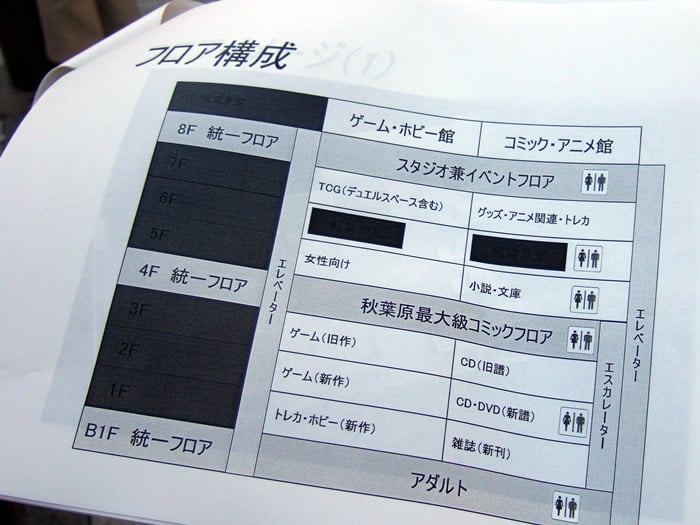 フロア構成
ゲーム・ホビー館
コミック・アニメ館
8F 統一フロア
スタジオ兼イベントフロア
7F
TCG(デュエルスペース含む)
グッズ・アニメ関連・トレカ
6F
5F
女性向け
小説・文庫
4F 統一フロア
秋葉原最大級コミックフロア
3F
ゲーム(旧作)
CD(旧譜)
2F
ゲーム(新作)
CD・DVD(新譜)
1F
トレカ・ホビー(新作)
雑誌(新刊)
B1F 統一フロア
アダルト
エレベーター
エスカレーター
エレベーター